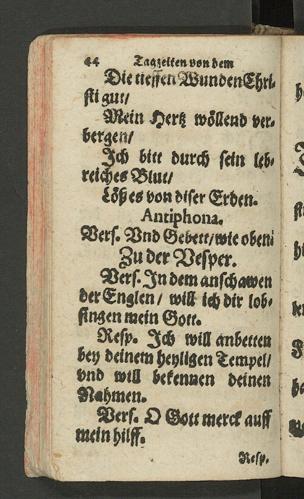 44 Tagzeiten von dem
Die tieffen Wunden Chri-
sti gut/
Mein Hertz wöllend ver-
bergen/
Ich bitt durch sein leb-
reiches Blut/
Löß es von diser Erden.
Antiphona.
Vers. Vnd Gebett/wie oben:
Zu der Vesper.
Vers. In dem anschawen
der Englen / will ich dir lob-
singen mein Gott.
Resp. Ich will anbetten
bey deinem heyligen Tempel/
vnd will bekennen deinen
Nahmen.
Vers. O Gott merck auff
mein hilff.
Resp.